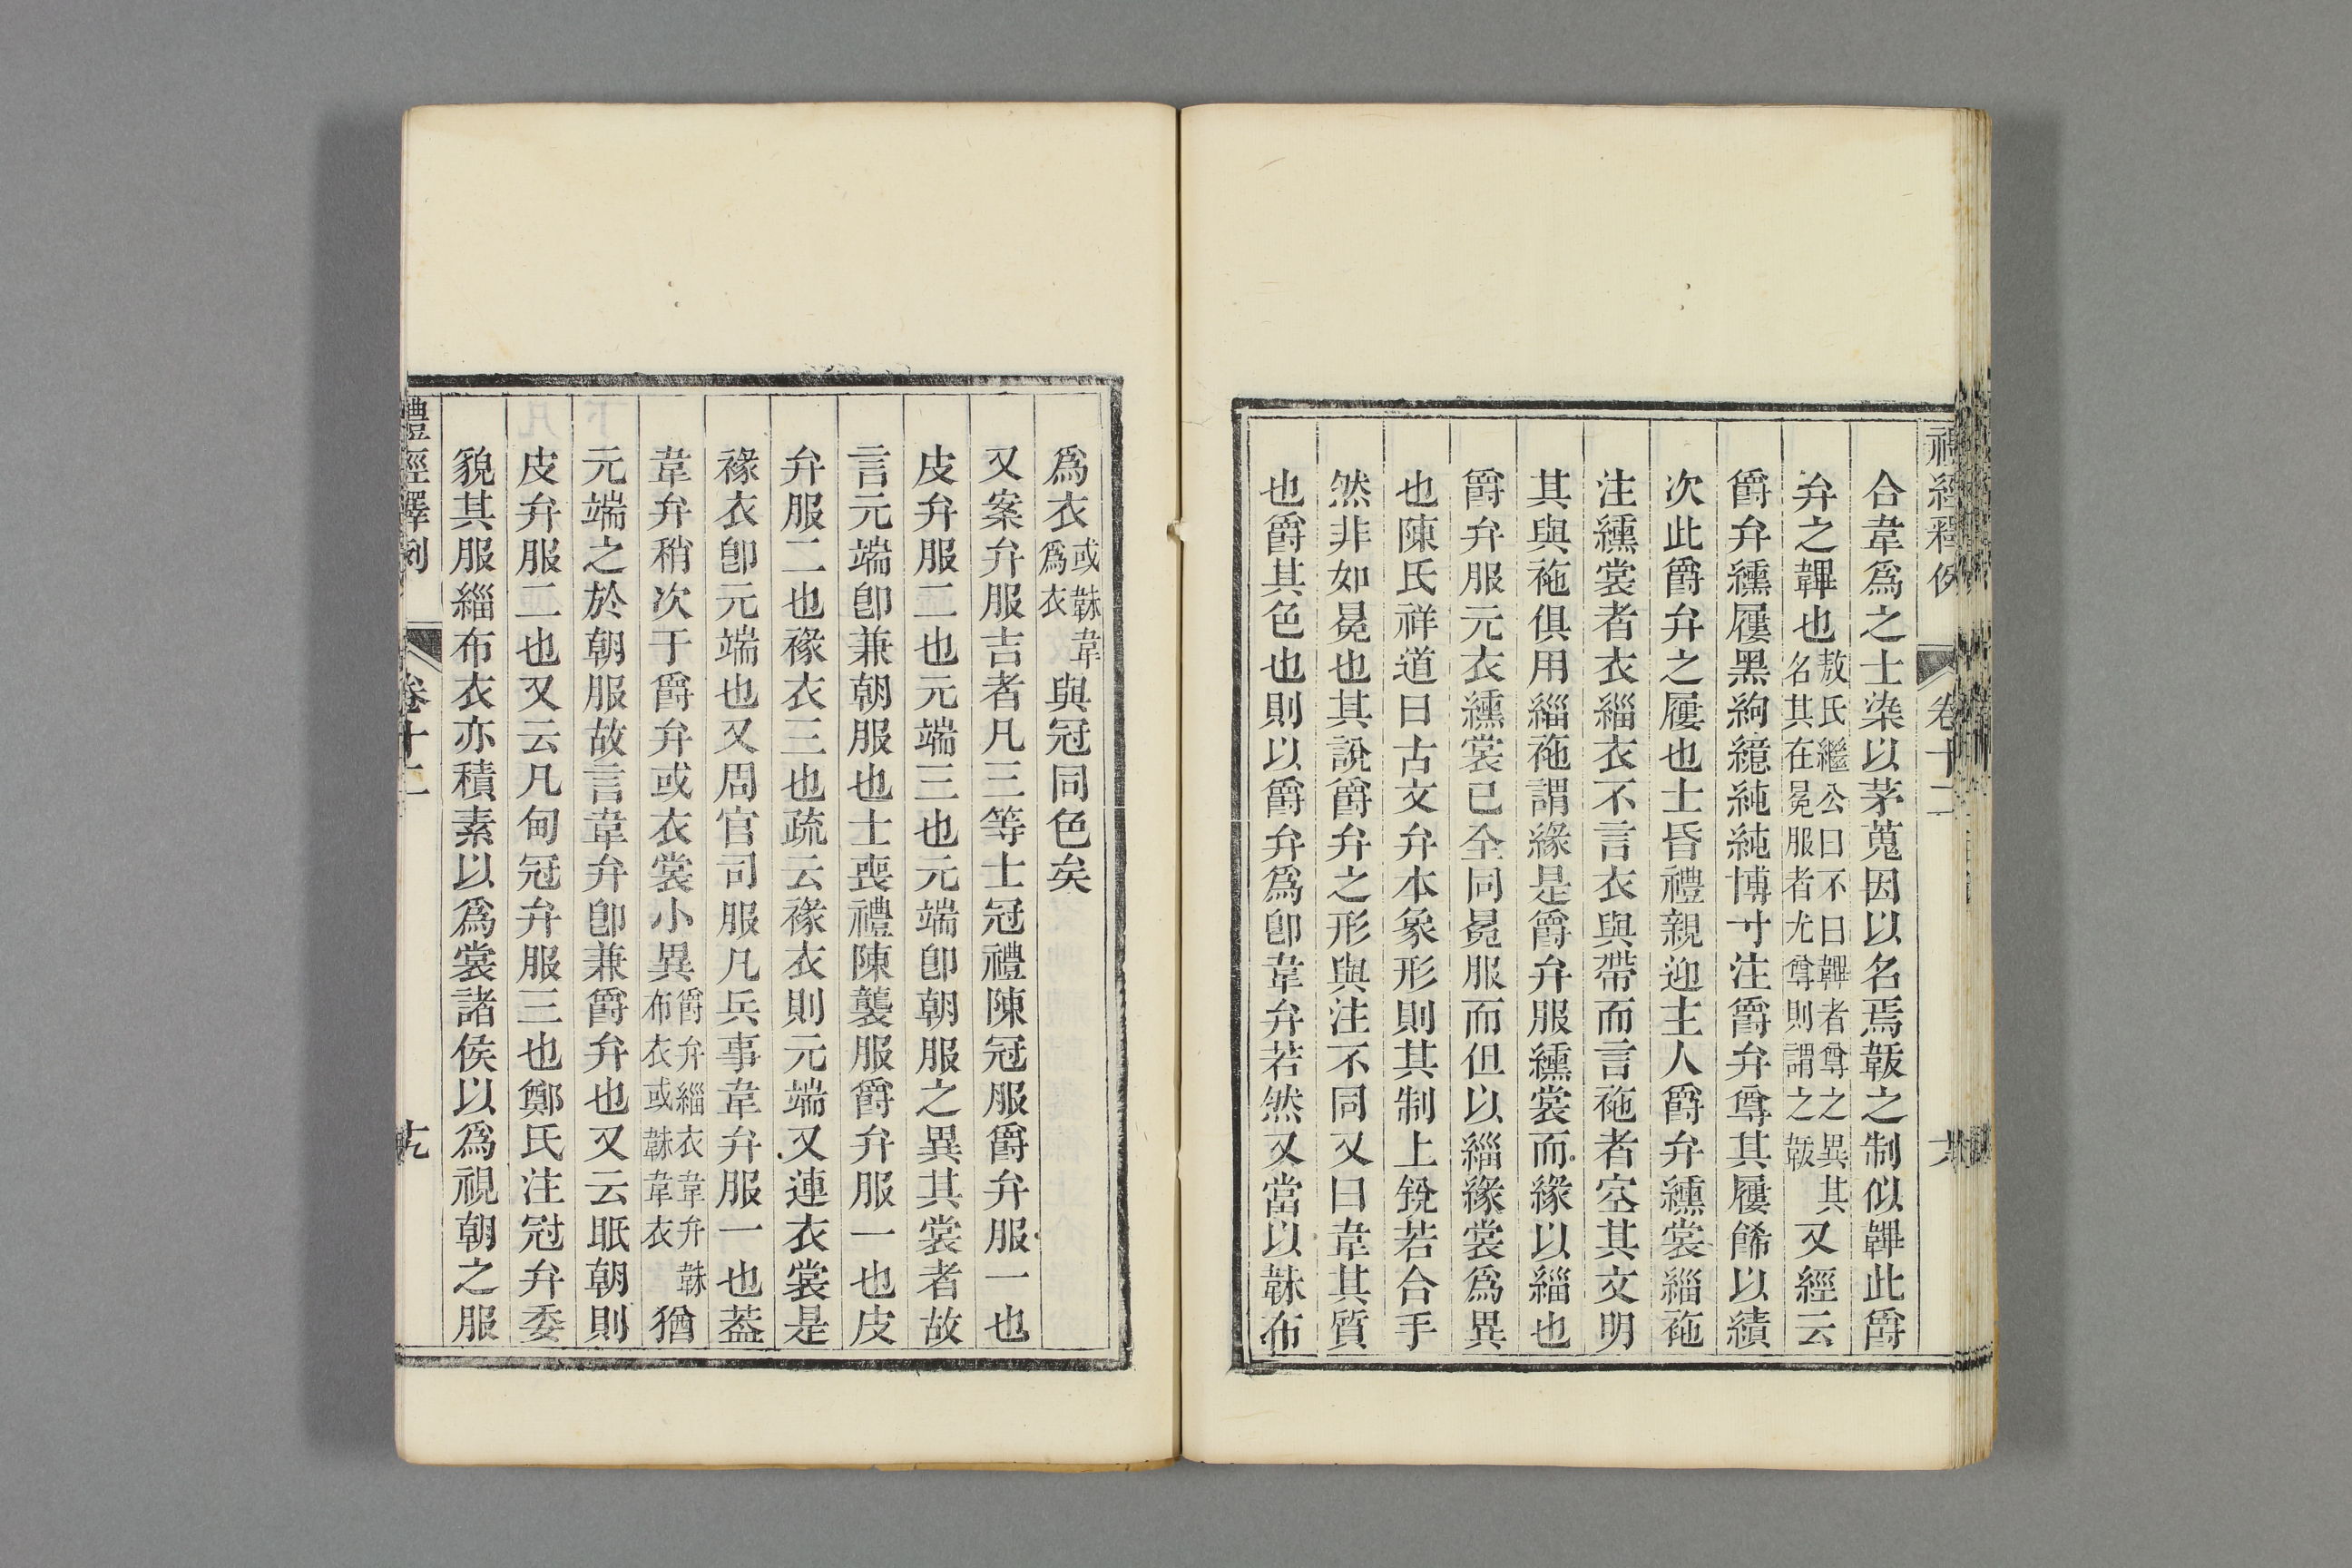 禮經釋例 卷十二
合韋爲之士染以茅蒐因以名焉韍之制似韠此爵
弁之韠也敖氏繼公曰不曰韠者尊之異其名其在冕服者尤尊則謂之韍又經云
爵弁纁屨黑絇繶純純博寸注爵弁尊其屨飾以繢
次此爵弁之屨也士昏禮親迎主人爵弁纁裳緇袘
注纁裳者衣緇衣不言衣與帶而言袘者空其文明
其與袘俱用緇袘謂緣是爵弁服纁裳而緣以緇也
爵弁服元衣纁裳已全同冕服而但以緇緣裳爲異
也陳氏祥道曰古文弁本象形則其制上銳若合手
然非如冕也其說爵弁之形與注不同又曰韋其質
也爵其色也則以爵弁爲卽韋弁若然又當以韎布
爲衣或韎韋爲衣與冠同色矣
又案弁服吉者凡三等士冠禮陳冠服爵弁服一也
皮弁服二也元端三也元端卽朝服之異其裳者故
言元端卽兼朝服也士喪禮陳襲服爵弁服一也皮
弁服二也褖衣三也疏云褖衣則元端又連衣裳是
褖衣卽元端也又周官司服凡兵事韋弁服一也葢
韋弁稍次于爵弁或衣裳小異爵弁緇衣韋弁韎布衣或韎韋衣猶
元端之於朝服故言韋弁卽兼爵弁也又云眡朝則
皮弁服二也又云凡甸冠弁服三也鄭氏注冠弁委
貌其服緇布衣亦積素以爲裳諸侯以爲視朝之服
禮經釋例 卷十二 十九